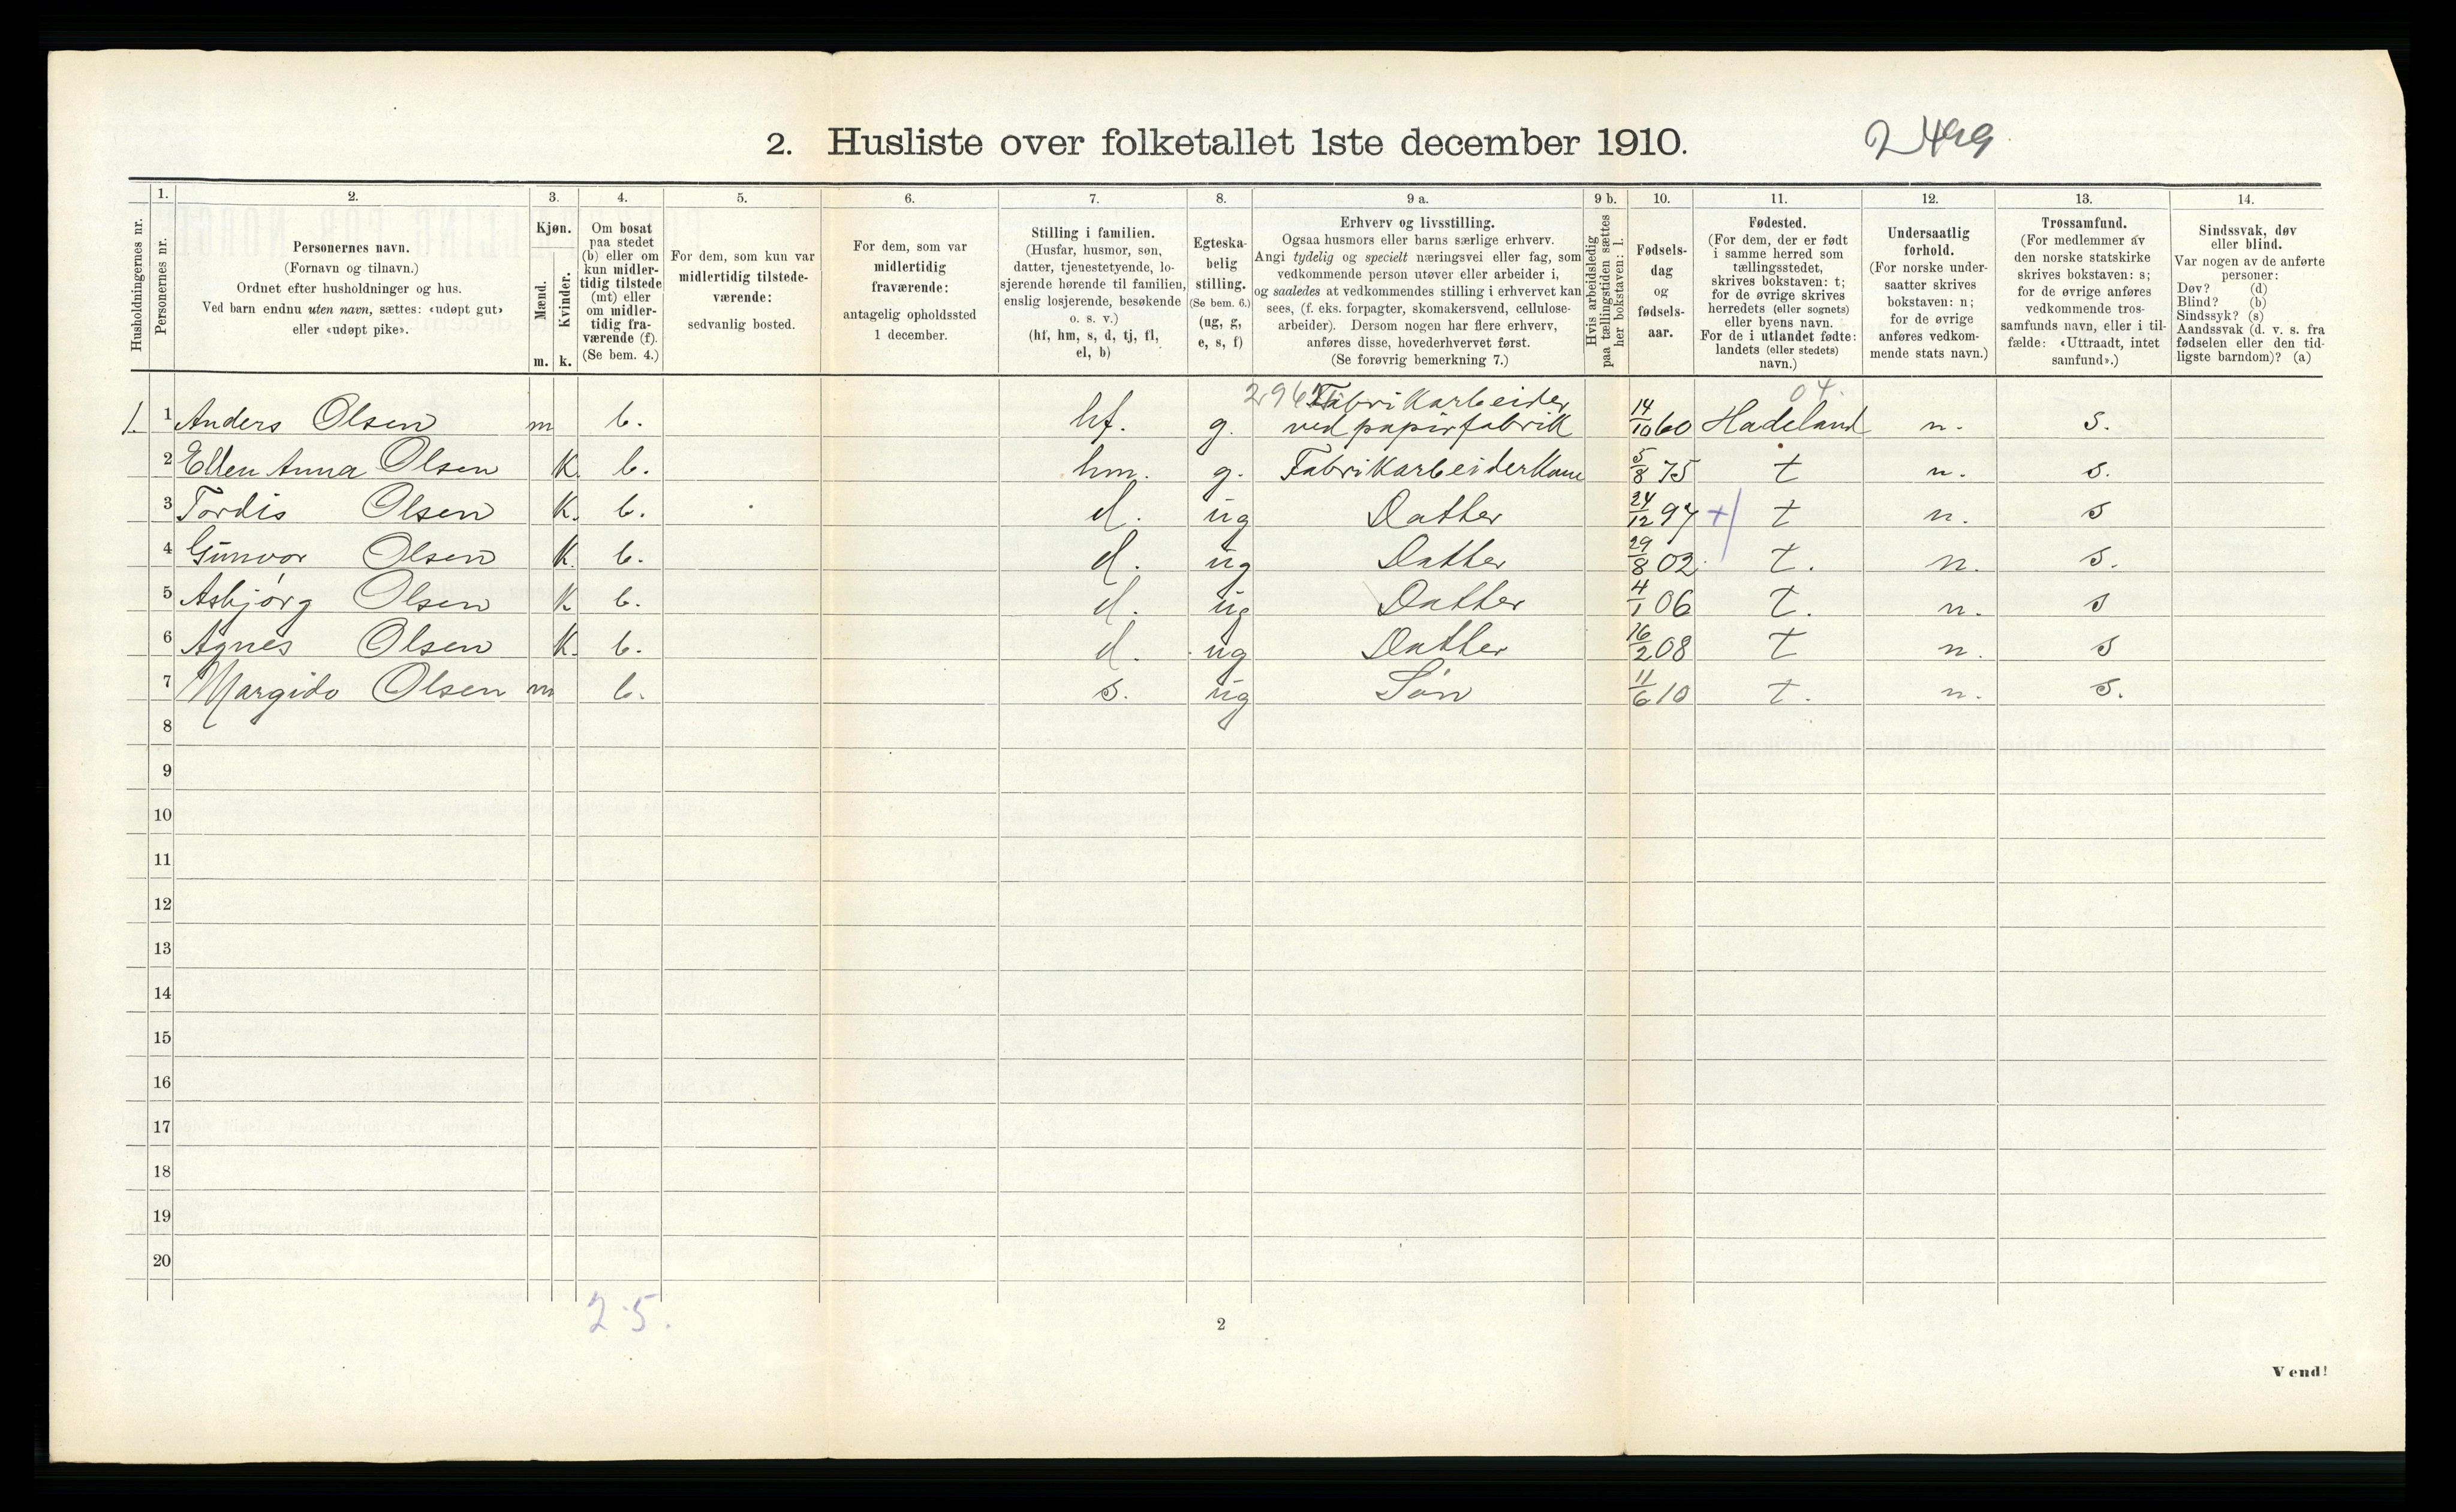 2. Husliste over folketallet 1ste december 1910.
1. 2. 3. 4. 5. 6. 7. 8. 9 a. 9 b. 10. 11. 12. 13. 14.
Husholdningernes nr.
Personernes nr.
Personernes navn.
(Fornavn og tilnavn.)
Ordnet efter husholdninger og hus.
Ved barn endnu uten navn, sættes: «udøpt gut»
eller «udøpt pike».
Kjøn.
Mænd.
Kvinder.
m. k.
Om bosat
paa stedet
(b) eller om
kun midler-
tidig tilstede
(mt) eller
om midler-
tidig fra-
værende (f).
(Se bem. 4.)
For dem, som kun var
midlertidig tilstede-
værende:
sedvanlig bosted.
For dem, som var
midlertidig
fraværende:
antagelig opholdssted
1 december.
Stilling i familien.
(Husfar, husmor, søn,
datter, tjenestetyende, lo-
sjerende hørende til familien,
enslig losjerende, besøkende
o. s. v.)
(hf, hm, s, d, tj, fl,
el, b)
Egteska-
belig
stilling.
(Se bem. 6.)
(ug, g,
e, s, f)
Erhverv og livsstilling.
Ogsaa husmors eller barns særlige erhverv.
Angi tydelig og specielt næringsvei eller fag, som
vedkommende person utøver eller arbeider i,
og saaledes at vedkommendes stilling i erhvervet kan
sees, (f. eks. forpagter, skomakersvend, cellulose-
arbeider). Dersom nogen har flere erhverv,
anføres disse, hovederhvervet først.
(Se forøvrig bemerkning 7.)
Hvis arbeidsledig
paa tællingstiden sættes
her bokstaven: l.
Fødsels-
dag
og
fødsels-
aar.
Fødested.
(For dem, der er født
i samme herred som
tællingsstedet,
skrives bokstaven: t;
for de øvrige skrives
herredets (eller sognets)
eller byens navn.
For de i utlandet fødte:
landets (eller stedets)
navn.)
Undersaatlig
forhold.
(For norske under-
saatter skrives
bokstaven: n;
for de øvrige
anføres vedkom-
mende stats navn.)
Trossamfund.
(For medlemmer av
den norske statskirke
skrives bokstaven: s;
for de øvrige anføres
vedkommende tros-
samfunds navn, eller i til-
fælde: «Uttraadt, intet
samfund».)
Sindssvak, døv
eller blind.
Var nogen av de anførte
personer:
Døv? (d)
Blind? (b)
Sindssyk? (s)
Aandssvak (d. v. s. fra
fødselen eller den tid-
ligste barndom)? (a)
04.
Fabrikarbeider
1. 1 Anders Olsen m b. hf. g. ved papirfabrik 14/10 60 Hadeland n. s.
2 Ellen Anna Olsen K. b. hm. g. Fabrikarbeiderkone 5/8 75 t n. s.
3 Tordis Olsen K. b. d. ug Datter 24/12 97 + t n. s
4 Gunvor Olsen K. b. d. ug Datter 29/8 02 t. n. s.
5 Asbjørg Olsen K b. d. ug Datter 4/1 06 t. n. s
6 Agnes Olsen K. b. d. ug Datter 16/2 08 t n. s
7 Margido Olsen m b. s. ug Søn 11/6 10 t. n. s.
8
9
10
11
12
13
14
15
16
17
18
19
20
2.5.
2
Vend!